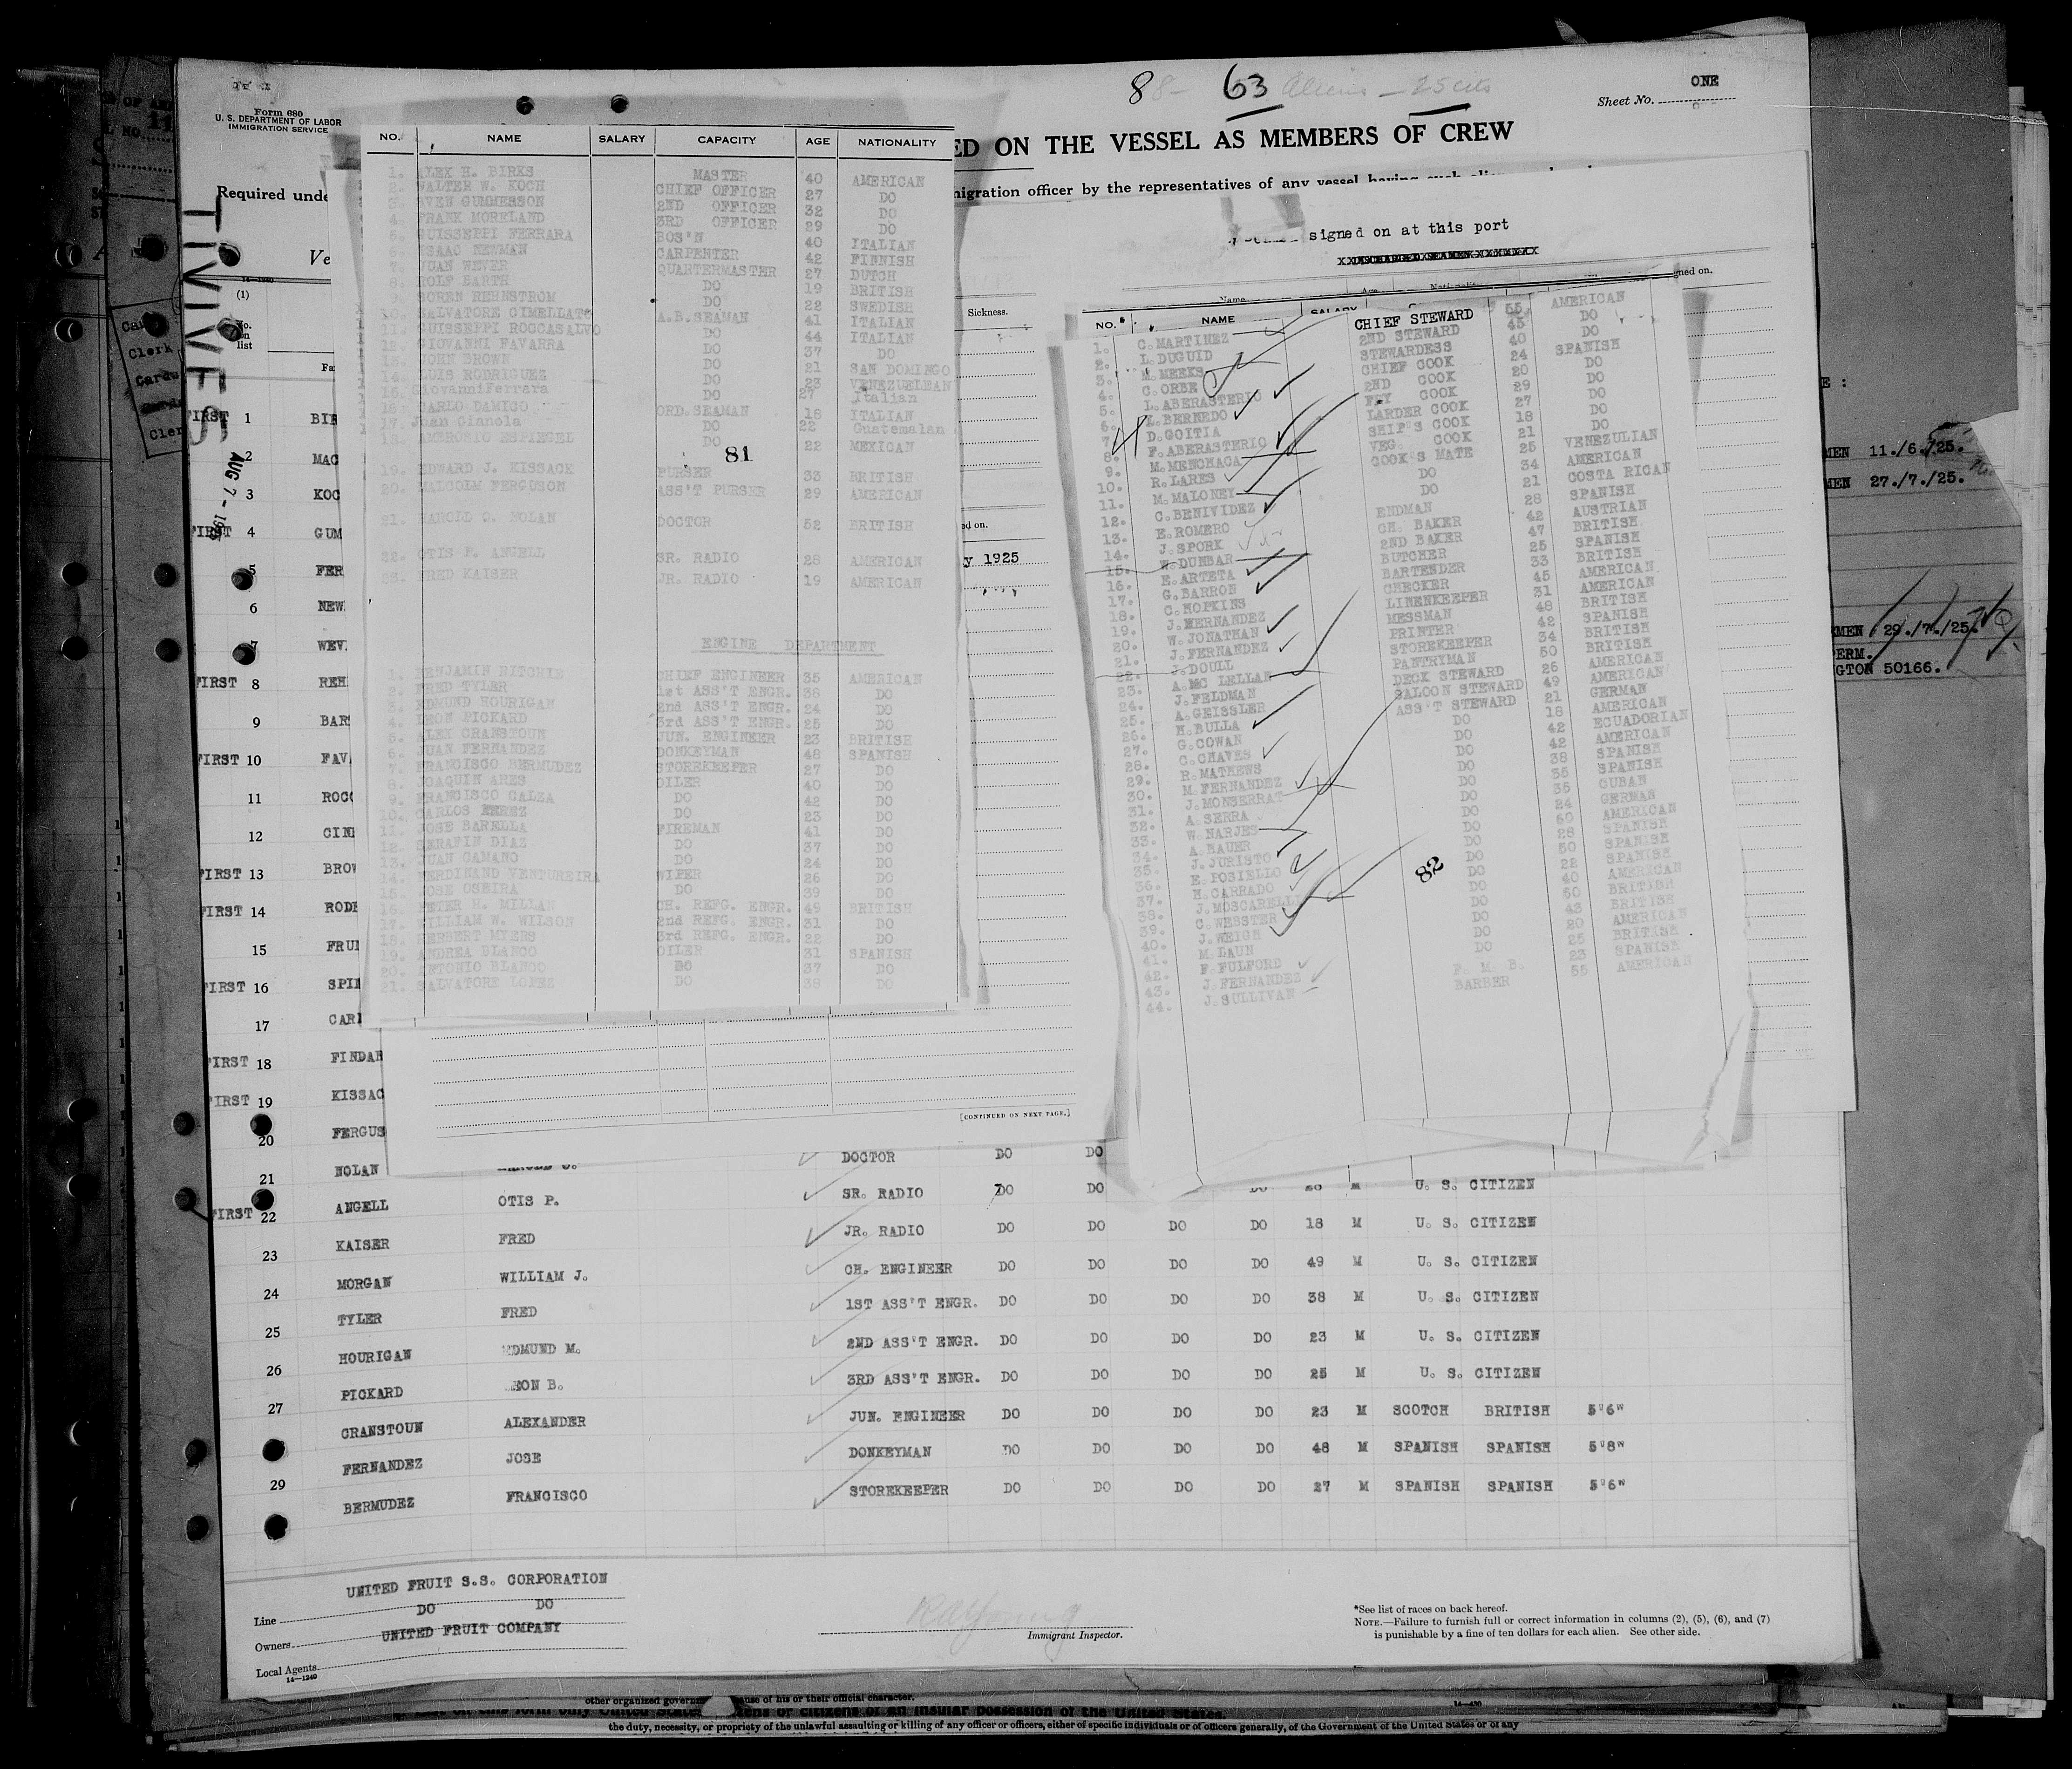 88- 63 Aliens - 25 cits
ONE
Sheet No.
Form 680
U. S. DEPARTMENT OF LABOR
IMMIGRATION SERVICE
ED ON THE VESSEL AS MEMBERS OF CREW
Required unde
migration officer by the representatives of any vessel having such
signed on at this port
Ve
TIVIVES
AUG 7 - 19
14-1240
(1)
No. on list
Sickness.
gned on.
ed on.
y 1925
NO. NAME SALARY CAPACITY AGE NATIONALITY
1. ALEX H. BIRKS MASTER 40 AMERICAN
2. WALTER W. KOCH CHIEF OFFICER 27 DO
3. SVEN GUMMERSON 2ND OFFICER 32 DO
4. FRANK MORELAND 3RD OFFICER 29 DO
5. GUISSEPPI FERRARA BOS'N 40 ITALIAN
6. ISAAC NEWMAN CARPENTER 42 FINNISH
7. JUAN WEVER QUARTERMASTER 27 DUTCH
8. ROLF BARTH DO 19 BRITISH
9. SOREN REHNSTROM DO 22 SWEDISH
10. SALVATORE CIMELLATO A.B. SEAMAN 41 ITALIAN
11. GUISSEPPI ROCCASALVO DO 44 ITALIAN
12. GIOVANNI FAVARRA DO 37 DO
13. JOHN BROWN DO 21 SAN DOMINGO
14. LUIS RODRIGUEZ DO 23 VENEZUELEAN
15. Giovanni Ferrara DO 27 Italian
16. CARLO DAMICO ORD. SEAMAN 18 ITALIAN
17. Juan Gianola DO 22 Guatemalan
18. AMBROSIO ESPIEGEL DO 22 MEXICAN
81
19. EDWARD J. KISSACK PURSER 33 BRITISH
20. MALCOLM FERGUSON ASS'T PURSER 29 AMERICAN
21. HAROLD C. NOLAN DOCTOR 52 BRITISH
22. OTIS P. ANGELL SR. RADIO 28 AMERICAN
23. FRED KAISER JR. RADIO 19 AMERICAN
ENGINE DEPARTMENT
1. BENJAMIN RITCHIE CHIEF ENGINEER 35 AMERICAN
2. FRED TYLER 1st ASS'T ENGR. 38 DO
3. EDMUND HOURIGAN 2nd ASS'T ENGR. 24 DO
4. LEON PICKARD 3rd ASS'T ENGR. 25 DO
5. ALEX CRANSTOUN JUN. ENGINEER 23 BRITISH
6. JUAN FERNANDEZ DONKEYMAN 48 SPANISH
7. FRANCISCO BERMUDEZ STOREKEEPER 27 DO
8. JOAQUIN ARES OILER 40 DO
9. FRANCISCO CALZA DO 42 DO
10. CARLOS PEREZ DO 23 DO
11. JOSE BARELLA FIREMAN 41 DO
12. SERAFIN DIAZ DO 37 DO
13. JUAN CAMANO DO 24 DO
14. FERDINAND VENTUREIRA WIPER 26 DO
15. JOSE OSEIRA DO 39 DO
16. PETER H. MILLAN CH. REFG. ENGR. 49 BRITISH
17. WILLIAM W. WILSON 2nd REFG. ENGR. 31 DO
18. HERBERT MYERS 3rd REFG. ENGR. 22 DO
19. ANDREA BLANCO OILER 31 SPANISH
20. ANTONIO BLANCO DO 37 DO
21. SALVATORE LOPEZ DO 38 DO
[CONTINUED ON NEXT PAGE.]
Name Age Nationality
NO. NAME SALARY
1. C. MARTINEZ CHIEF STEWARD 55 AMERICAN
2. L. DUGUID 2ND STEWARD 45 DO
3. M. MEEKS STEWARDESS 40 DO
4. C. ORBE CHIEF COOK 24 SPANISH
5. L. ABERASTERIO 2ND COOK 20 DO
6. L. BERNEDO COOK 29 DO
7. D. GOITIA LARDER COOK 27 DO
8. F. ABERASTERIO SHIP'S COOK 18 DO
9. M. MENCHACA VEG. COOK 21 DO
10. R. LARES COOK'S MATE 25 VENEZULIAN
11. M. MALONEY DO 34 AMERICAN
12. C. BENIVIDEZ DO 21 COSTA RICAN
13. E. ROMERO ENDMAN 28 SPANISH
14. J. SPORK CH. BAKER 42 AUSTRIAN
15. W. DUNBAR 2ND BAKER 47 BRITISH
16. E. ARTETA BUTCHER 25 SPANISH
17. G. BARRON BARTENDER 33 BRITISH
18. C. HOPKINS CHECKER 45 AMERICAN
19. J. HERNANDEZ LINENKEEPER 31 AMERICAN
20. W. JONATHAN MESSMAN 48 BRITISH
21. J. FERNANDEZ PRINTER 42 SPANISH
22. J. DOULL STOREKEEPER 34 BRITISH
23. A. MC LELLAN PANTRYMAN 50 BRITISH
24. J. FELDMAN DECK STEWARD 26 AMERICAN
25. A. GEISSLER SALOON STEWARD 49 AMERICAN
26. H. BULLA ASS'T STEWARD 21 GERMAN
27. G. COWAN DO 18 AMERICAN
28. C. CHAVES DO 42 ECUADORIAN
29. R. MATHEWS DO 42 AMERICAN
30. M. FERNANDEZ DO 38 SPANISH
31. J. MONSERRAT DO 35 SPANISH
32. A. SERRA DO 35 CUBAN
33. W. NARJES DO 24 GERMAN
34. A. BAUER DO 60 AMERICAN
35. J. JURISTO DO 28 SPANISH
36. E. POSIELLO DO 50 SPANISH
37. H. CARRADO DO 22 SPANISH
38. J. MOSCARELL DO 40 AMERICAN
39. C. WEBSTER DO 50 BRITISH
40. J. WEIGH DO 43 BRITISH
41. M. DAUN DO 20 AMERICAN
42. F. FULFORD DO 25 BRITISH
43. J. FERNANDEZ P. M. B. 23 SPANISH
44. J. SULLIVAN BARBER 55 AMERICAN
82
FIRST 1 BIR
2 MAC
3 KOC
FIRST 4 GUM
5 FER
6 NEW
7 WEV
FIRST 8 REH
9 BAR
FIRST 10 FAV
11 ROCC
12 CIN
FIRST 13 BROW
FIRST 14 RODR
15 FRUI
FIRST 16 SPIE
17 CARL
FIRST 18 FINDAR
FIRST 19 KISSAC
20 FERGUS
21 NOLAN DOCTOR DO DO
FIRST 22 ANGELL OTIS P. SR. RADIO DO DO DO M U. S. CITIZEN
23 KAISER FRED JR. RADIO DO DO DO DO 18 M U. S. CITIZEN
24 MORGAN WILLIAM J. CH. ENGINEER DO DO DO DO 49 M U. S. CITIZEN
25 TYLER FRED 1ST ASS'T ENGR. DO DO DO DO 38 M U. S. CITIZEN
26 HOURIGAN EDMUND M. 2ND ASS'T ENGR. DO DO DO DO 23 M U. S. CITIZEN
27 PICKARD LEON B. 3RD ASS'T ENGR. DO DO DO DO 25 M U. S. CITIZEN
CRANSTOUN ALEXANDER JUN. ENGINEER DO DO DO DO 23 M SCOTCH BRITISH 5'6"
29 FERNANDEZ JOSE DONKEYMAN DO DO DO DO 48 M SPANISH SPANISH 5'8"
BERMUDEZ FRANCISCO STOREKEEPER DO DO DO DO 27 M SPANISH SPANISH 5'6"
Line UNITED FRUIT S.S. CORPORATION
Owners DO DO
Local Agents UNITED FRUIT COMPANY
14-1240
Immigrant Inspector.
*See list of races on back hereof.
NOTE.—Failure to furnish full or correct information in columns (2), (5), (6), and (7)
is punishable by a fine of ten dollars for each alien. See other side.
MEN 11./6./25.
MEN 27./7./25.
MEN 29./7./25.
PERM.
GTON 50166.
other organized govern ause of his or their official character.
on this form only United States zens or citizens of an insular possession of the United States.
the duty, necessity, or propriety of the unlawful assaulting or killing of any officer or officers, either of specific individuals or of officers generally, of the Government of the United States or of any